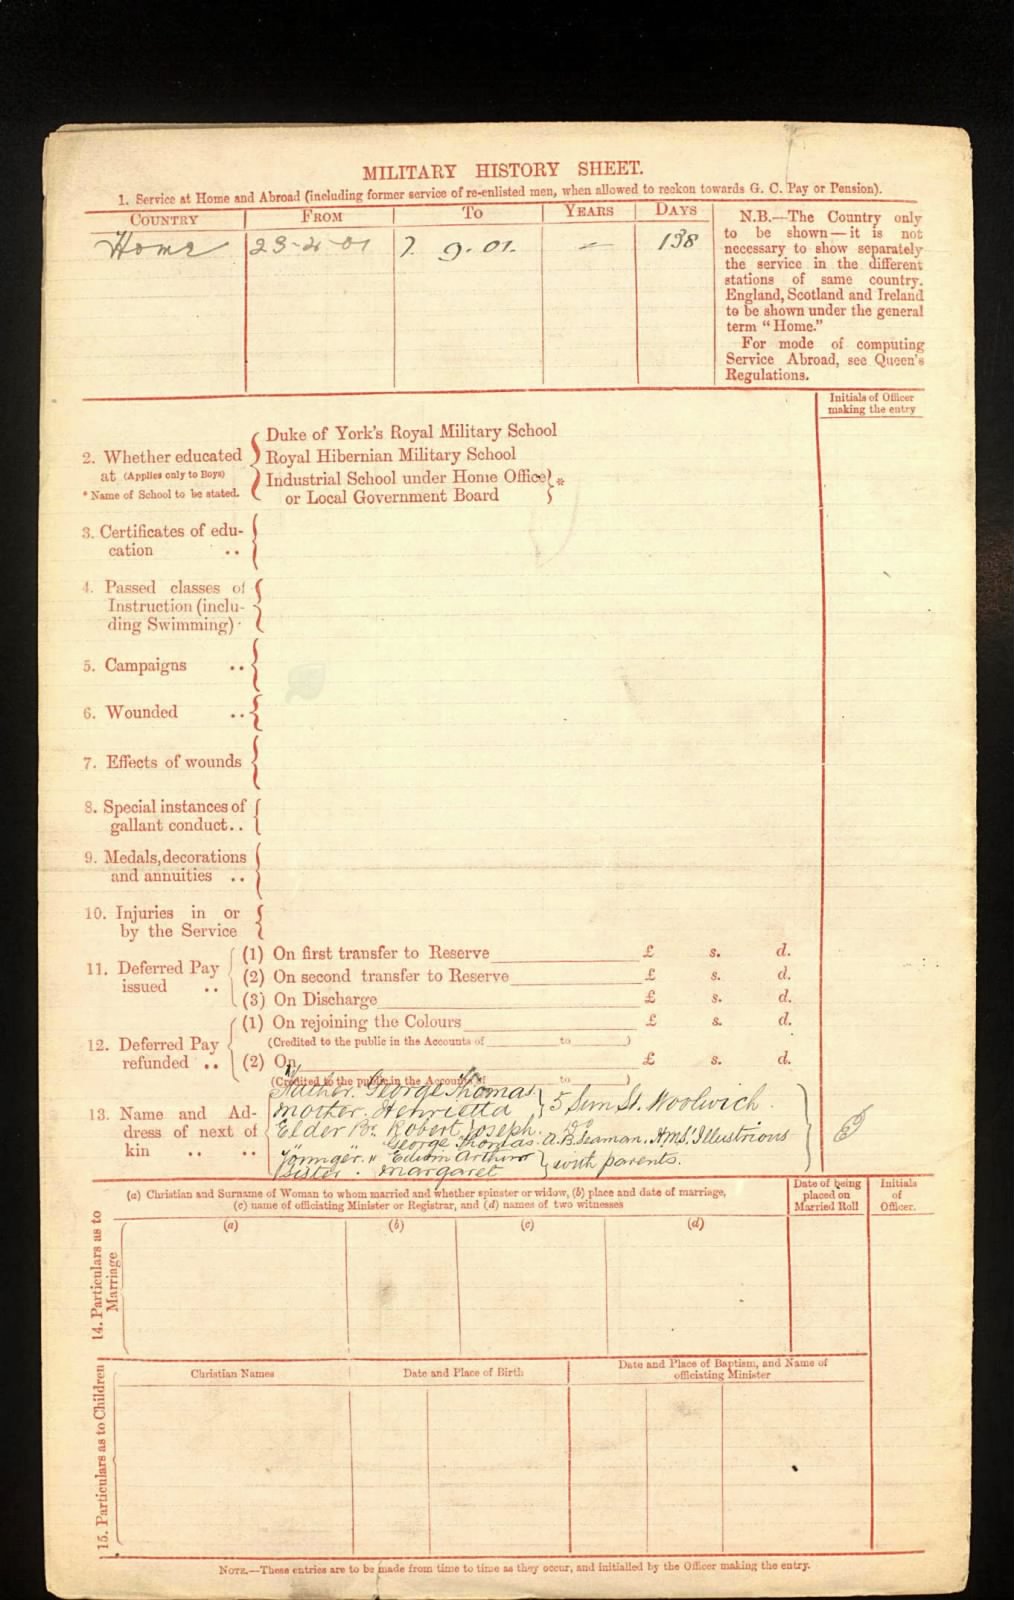 MILITARY HISTORY SHEET.
1. Service at Home and Abroad (including former service of re-enlisted men, when allowed to reckon towards G. C. Pay or Pension).
COUNTRY FROM TO YEARS DAYS
Home 23-4-01 7. 9. 01. — 138
N.B.—The Country only
to be shown—it is not
necessary to show separately
the service in the different
stations of same country.
England, Scotland and Ireland
to be shown under the general
term "Home."
For mode of computing
Service Abroad, see Queen's
Regulations.
Initials of Officer
making the entry
2. Whether educated
at (Applies only to Boys)
* Name of School to be stated.
Duke of York's Royal Military School
Royal Hibernian Military School
Industrial School under Home Office
or Local Government Board
*
3. Certificates of edu-
cation ..
4. Passed classes of
Instruction (inclu-
ding Swimming)
5. Campaigns ..
6. Wounded ..
7. Effects of wounds
8. Special instances of
gallant conduct..
9. Medals, decorations
and annuities ..
10. Injuries in or
by the Service
11. Deferred Pay
issued ..
(1) On first transfer to Reserve £ s. d.
(2) On second transfer to Reserve £ s. d.
(3) On Discharge £ s. d.
12. Deferred Pay
refunded ..
(1) On rejoining the Colours £ s. d.
(Credited to the public in the Accounts of to )
(2) On £ s. d.
(Credited to the public in the Accounts of to )
13. Name and Ad-
dress of next of
kin .. ..
Father. George Thomas.
Mother. Henrietta 5 Sun St. Woolwich.
Elder Br. Robert Joseph. Do
George Thomas. A.B. Seaman. H.M.S. Illustrious
Younger. " Edwin Arthur
Sister. Margaret with parents.
(a) Christian and Surname of Woman to whom married and whether spinster or widow, (b) place and date of marriage,
(c) name of officiating Minister or Registrar, and (d) names of two witnesses
Date of being
placed on
Married Roll
Initials
of
Officer.
14. Particulars as to
Marriage
(a) (b) (c) (d)
15. Particulars as to Children
Christian Names
Date and Place of Birth
Date and Place of Baptism, and Name of
officiating Minister
NOTE.—These entries are to be made from time to time as they occur, and initialled by the Officer making the entry.